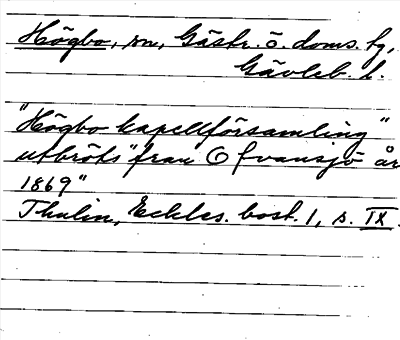 Högbo, sn, Gästr. ö. doms. fg,
Gävleb. l.
"Högbo kapellförsamling"
utbröts "från Ofvansjö år
1869"
Thulin, Eckles. bost. 1, s. IX.